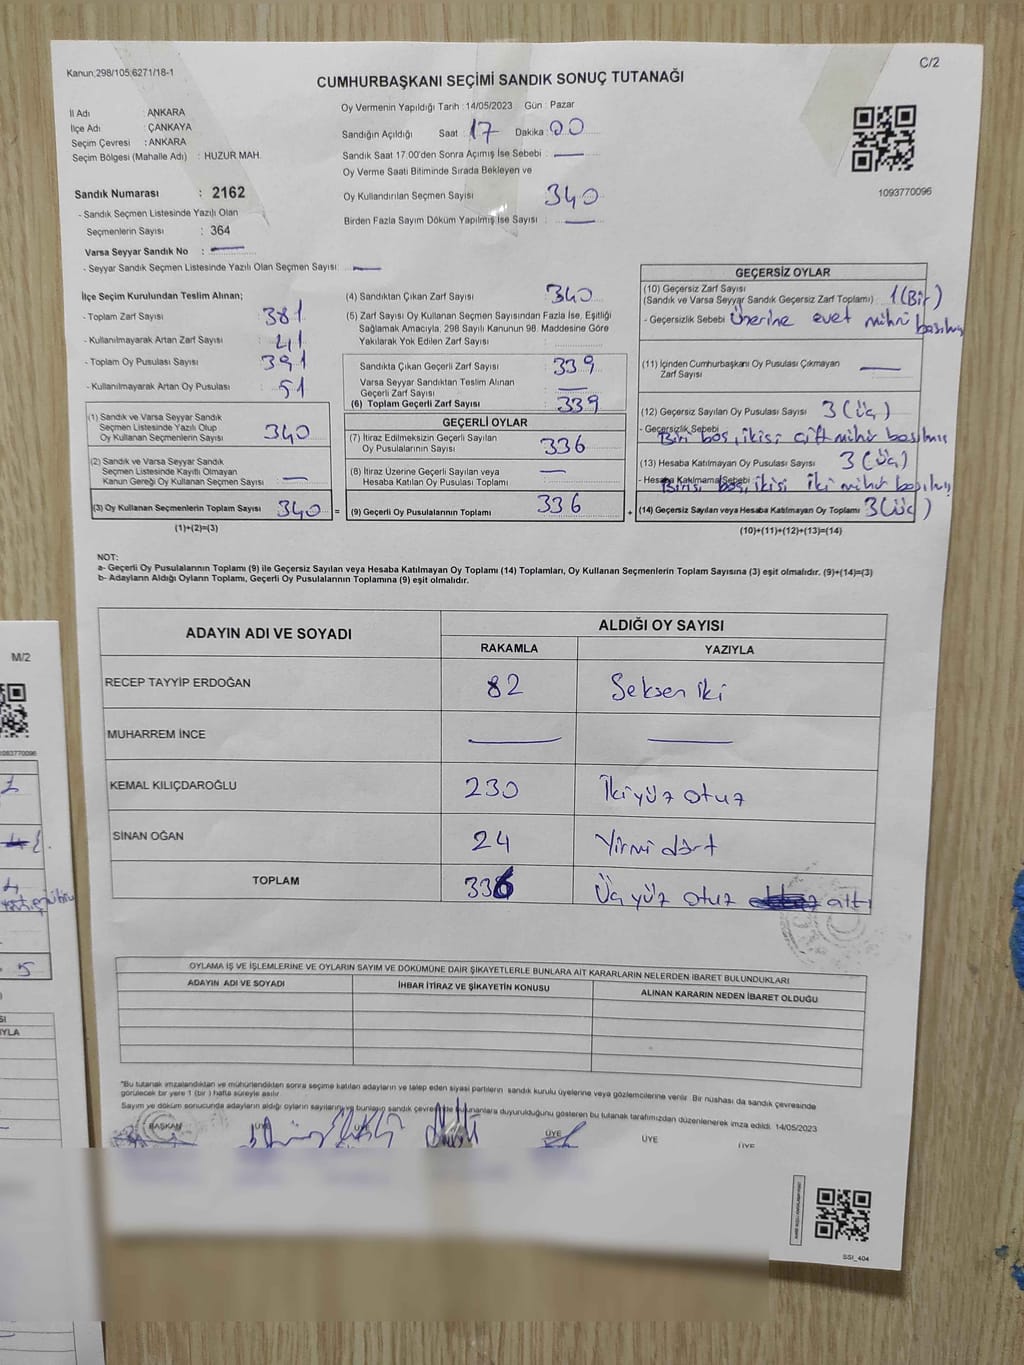 Kanun:298/105;6271/18-1
C/2
CUMHURBAŞKANI SEÇİMİ SANDIK SONUÇ TUTANAĞI
İl Adı : ANKARA
İlçe Adı : ÇANKAYA
Seçim Çevresi : ANKARA
Seçim Bölgesi (Mahalle Adı) : HUZUR MAH.
Sandık Numarası : 2162
- Sandık Seçmen Listesinde Yazılı Olan
Seçmenlerin Sayısı : 364
Varsa Seyyar Sandık No :
- Seyyar Sandık Seçmen Listesinde Yazılı Olan Seçmen Sayısı:
Oy Vermenin Yapıldığı Tarih : 14/05/2023 Gün : Pazar
Sandığın Açıldığı Saat : 17 Dakika : 00
Sandık Saat 17.00'den Sonra Açımış İse Sebebi :
Oy Verme Saati Bitiminde Sırada Bekleyen ve
Oy Kullandırılan Seçmen Sayısı : 340
Birden Fazla Sayım Döküm Yapılmış İse Sayısı :
1093770096
İlçe Seçim Kurulundan Teslim Alınan;
- Toplam Zarf Sayısı : 381
- Kullanılmayarak Artan Zarf Sayısı : 41
- Toplam Oy Pusulası Sayısı : 391
- Kullanılmayarak Artan Oy Pusulası : 51
(1) Sandık ve Varsa Seyyar Sandık
Seçmen Listesinde Yazılı Olup
Oy Kullanan Seçmenlerin Sayısı : 340
(2) Sandık ve Varsa Seyyar Sandık
Seçmen Listesinde Kayıtlı Olmayan
Kanun Gereği Oy Kullanan Seçmen Sayısı :
(3) Oy Kullanan Seçmenlerin Toplam Sayısı : 340 =
(1)+(2)=(3)
(4) Sandıktan Çıkan Zarf Sayısı : 340
(5) Zarf Sayısı Oy Kullanan Seçmen Sayısından Fazla İse, Eşitliği
Sağlamak Amacıyla, 298 Sayılı Kanunun 98. Maddesine Göre
Yakılarak Yok Edilen Zarf Sayısı :
Sandıkta Çıkan Geçerli Zarf Sayısı : 339
Varsa Seyyar Sandıktan Teslim Alınan
Geçerli Zarf Sayısı :
(6) Toplam Geçerli Zarf Sayısı : 339
GEÇERLİ OYLAR
(7) İtiraz Edilmeksizin Geçerli Sayılan
Oy Pusulalarının Sayısı : 336
(8) İtiraz Üzerine Geçerli Sayılan veya
Hesaba Katılan Oy Pusulası Toplamı :
(9) Geçerli Oy Pusulalarının Toplamı : 336 +
GEÇERSİZ OYLAR
(10) Geçersiz Zarf Sayısı
(Sandık ve Varsa Seyyar Sandık Geçersiz Zarf Toplamı) : 1 (Bir)
- Geçersizlik Sebebi : Üzerine evet mührü basılmış
(11) İçinden Cumhurbaşkanı Oy Pusulası Çıkmayan
Zarf Sayısı :
(12) Geçersiz Sayılan Oy Pusulası Sayısı : 3 (Üç)
- Geçersizlik Sebebi
Biri boş, ikisi çift mühür basılmış
(13) Hesaba Katılmayan Oy Pusulası Sayısı : 3 (Üç)
- Hesaba Katılmama Sebebi :
Birisi boş, ikisi iki mühür basılmış
(14) Geçersiz Sayılan veya Hesaba Katılmayan Oy Toplamı : 3 (Üç)
(10)+(11)+(12)+(13)=(14)
NOT:
a- Geçerli Oy Pusulalarının Toplamı (9) ile Geçersiz Sayılan veya Hesaba Katılmayan Oy Toplamı (14) Toplamları, Oy Kullanan Seçmenlerin Toplam Sayısına (3) eşit olmalıdır. (9)+(14)=(3)
b- Adayların Aldığı Oyların Toplamı, Geçerli Oy Pusulalarının Toplamına (9) eşit olmalıdır.
ADAYIN ADI VE SOYADI
ALDIĞI OY SAYISI
RAKAMLA YAZIYLA
RECEP TAYYİP ERDOĞAN 82 Seksen iki
MUHARREM İNCE
KEMAL KILIÇDAROĞLU 230 İkiyüz otuz
SİNAN OĞAN 24 Yirmi dört
TOPLAM 336 Üçyüz otuz altı
OYLAMA İŞ VE İŞLEMLERİNE VE OYLARIN SAYIM VE DÖKÜMÜNE DAİR ŞİKAYETLERLE BUNLARA AİT KARARLARIN NELERDEN İBARET BULUNDUKLARI
ADAYIN ADI VE SOYADI İHBAR İTİRAZ VE ŞİKAYETİN KONUSU ALINAN KARARIN NEDEN İBARET OLDUĞU
"Bu tutanak imzalandıktan ve mühürlendikten sonra seçime katılan adayların ve talep eden siyasi partilerin sandık kurulu üyelerine veya gözlemcilerine verilir. Bir nüshası da sandık çevresinde
görülecek bir yere 1 (bir) hafta süreyle asılır.
Sayım ve döküm sonucunda adayların aldığı oyların sayılarını ve bunların sandık çevresinde bulunanlara duyurulduğunu gösteren bu tutanak tarafımızdan düzenlenerek imza edildi. 14/05/2023
BAŞKAN ÜYE ÜYE ÜYE ÜYE
SSİ_404
M/2
1093770096
5